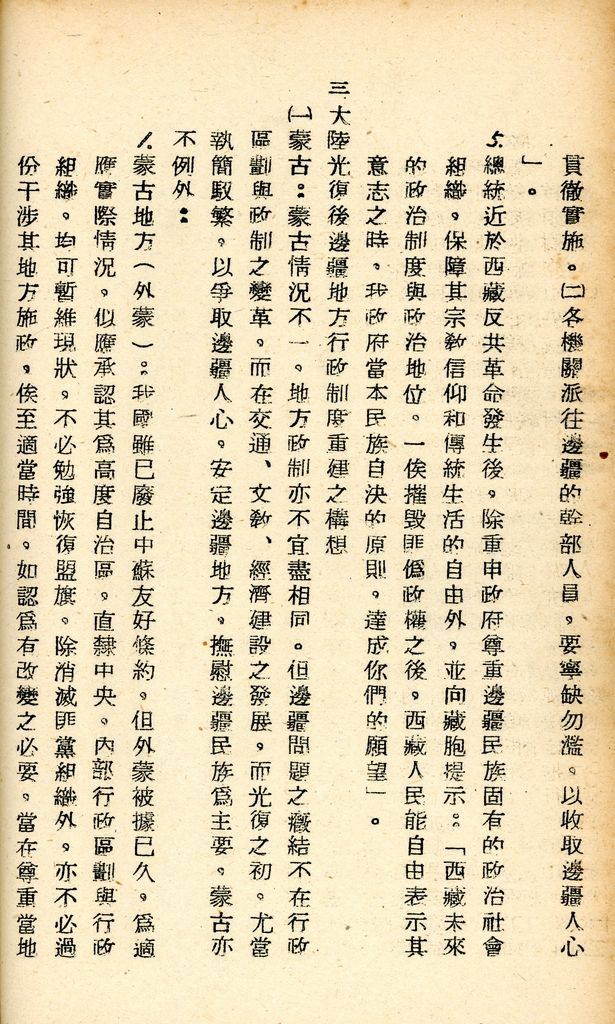 貫徹實施。㈡各機關派往邊疆的幹部人員，要寧缺勿濫，以收取邊疆人心
」。
5.總統近於西藏反共革命發生後，除重申政府尊重邊疆民族固有的政治社會
組織，保障其宗教信仰和傳統生活的自由外，並向藏胞提示：「西藏未來
的政治制度與政治地位，一俟摧毀匪僞政權之後，西藏人民能自由表示其
意志之時，我政府當本民族自決的原則，達成你們的願望」。
三大陸光復後邊疆地方行政制度重建之構想
㈠蒙古：蒙古情況不一，地方政制亦不宜盡相同。但邊疆問題之癥結不在行政
區劃與政制之變革，而在交通、文教、經濟建設之發展，而光復之初，尤當
執簡馭繁，以爭取邊疆人心，安定邊疆地方，撫慰邊疆民族爲主要，蒙古亦
不例外：
1.蒙古地方（外蒙）：我國雖已廢止中蘇友好條約，但外蒙被據已久，爲適
應實際情況，似應承認其爲高度自治區，直隸中央，內部行政區劃與行政
組織，均可暫維現狀，不必勉強恢復盟旗，除消滅匪黨組織外，亦不必過
份干涉其地方施政，俟至適當時間，如認爲有改變之必要，當在尊重當地